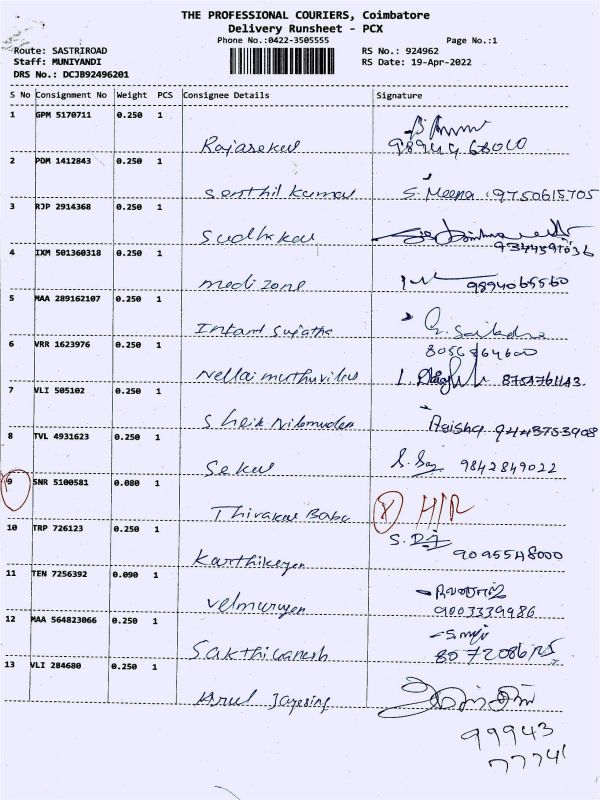 THE PROFESSIONAL COURIERS, Coimbatore
Delivery Runsheet - PCX
Phone No.:0422-3505555 Page No.:1
Route: SASTRIROAD RS No.: 924962
Staff: MUNIYANDI RS Date: 19-Apr-2022
DRS No.: DCJB92496201
S No Consignment No Weight PCS Consignee Details Signature
1 GPM 5170711 0.250 1
Rajasekul
2 PDM 1412843 0.250 1
Senthil kumar S. Meena 9750615705
3 RJP 2914368 0.250 1
Sudhakar
4 IXM 501360318 0.250 1
medi zone 9894065560
5 MAA 289162107 0.250 1
Intant Sujatha
6 VRR 1623976 0.250 1
Nellai muthuvilas
7 VLI 505102 0.250 1
Sheik Aeisha 9443753908
8 TVL 4931623 0.250 1
Sekul 9842849022
9 SNR 5100581 0.080 1
Thivakar Babu X H/R
10 TRP 726123 0.250 1
Karthikeyen 9095548000
11 TEN 7256392 0.090 1
Velmurugen 9003339986
12 MAA 564823066 0.250 1
Sakthiganesh
13 VLI 284680 0.250 1
Arul Jayesing
99943
77741